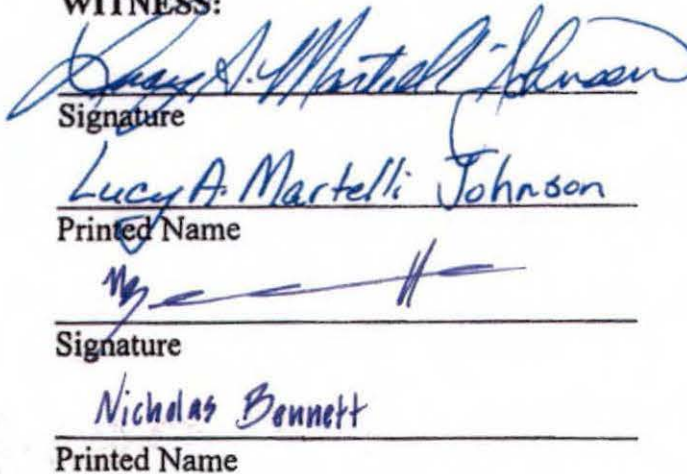 WITNESS:
Lucy A. Martelli Johnson
Signature
Lucy A. Martelli Johnson
Printed Name
Signature
Nicholas Bennett
Printed Name